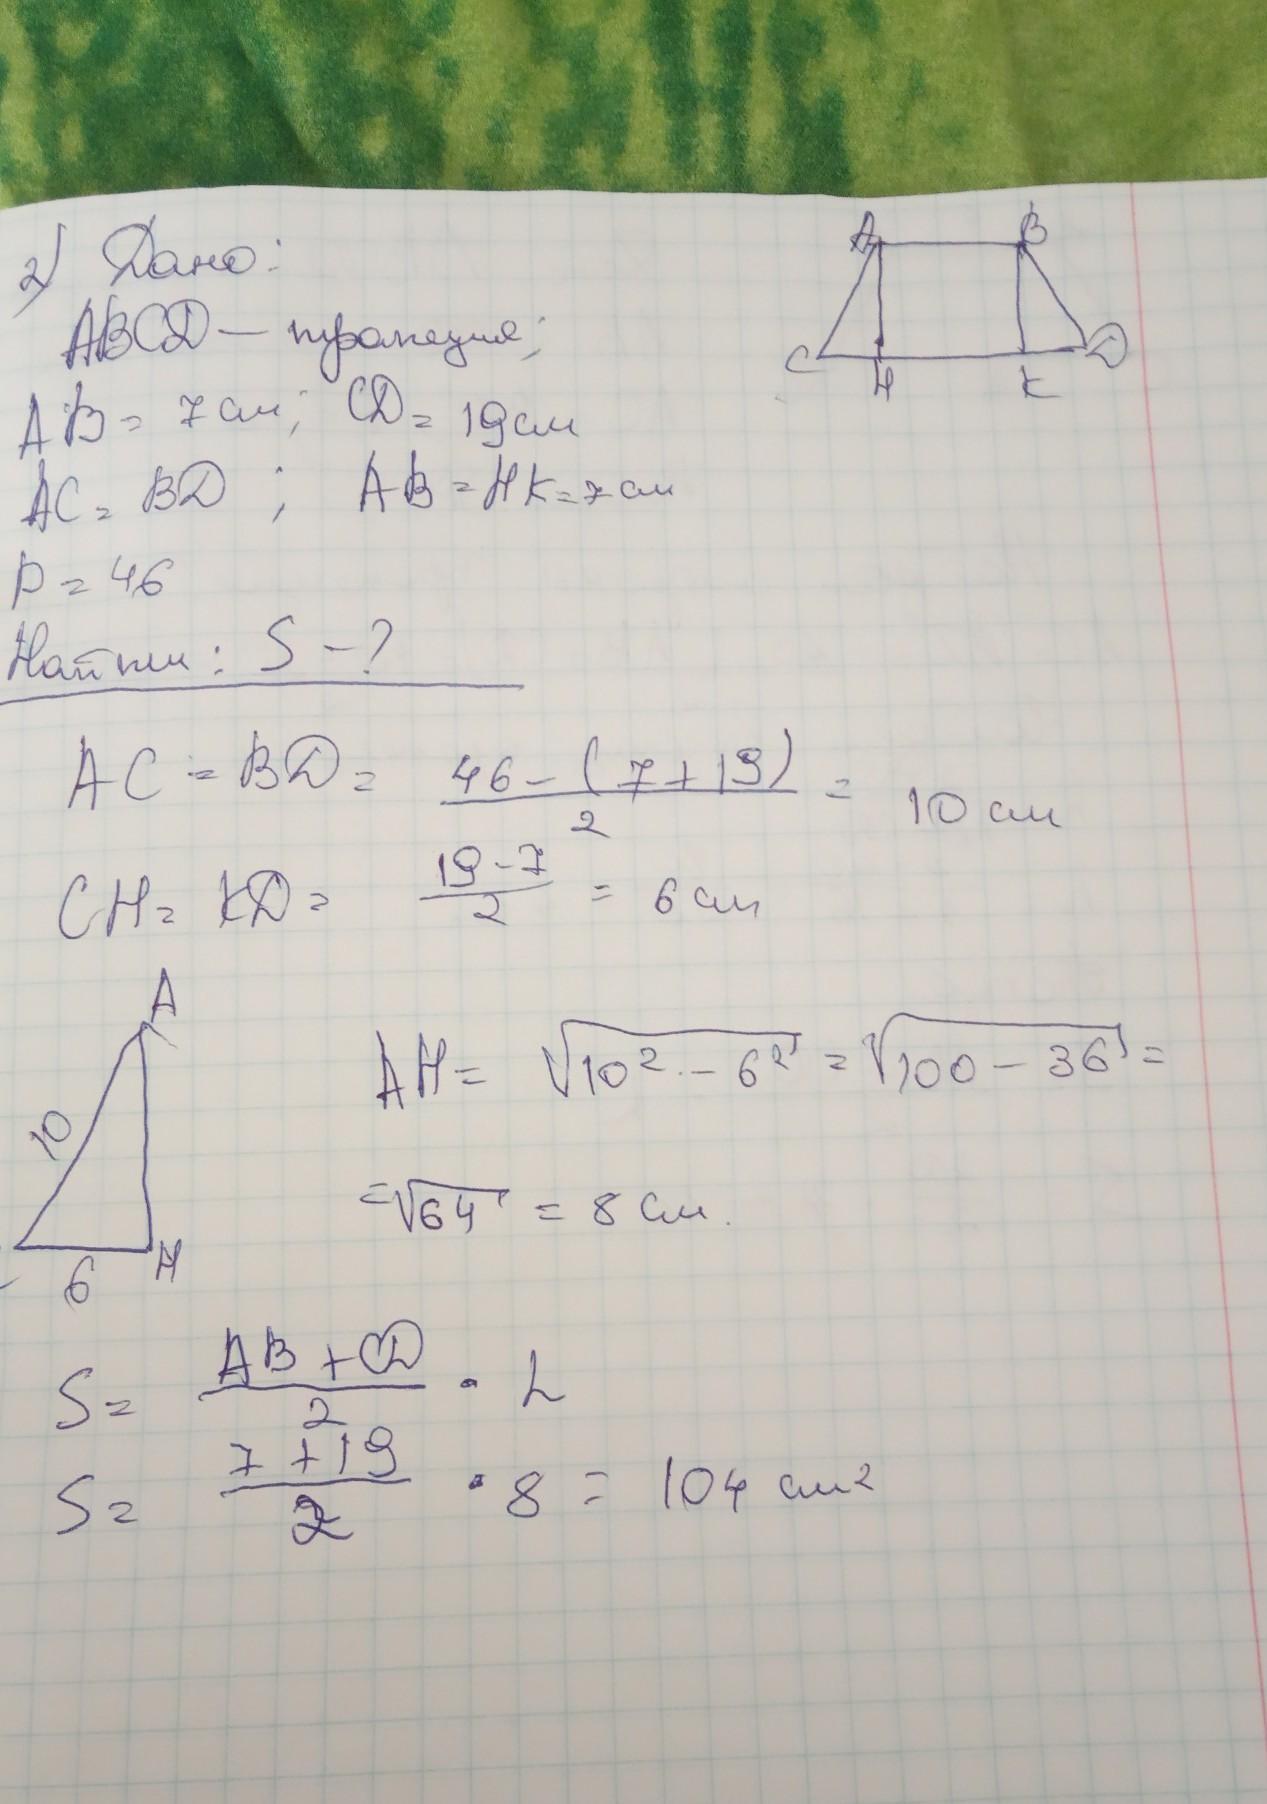 2) Дано:
A B
C H K D
ABCD – трапеция;
AB = 7 см; CD = 19 см
AC = BD ; AB = HK = 7 см
P = 46
Найти: S – ?
AC = BD = (46 – (7 + 19))/2 = 10 см
CH = KD = (19 - 7)/2 = 6 см
A
10
6 H
AH = √(10² - 6²) = √(100 – 36) =
= √64 = 8 см.
S = (AB + CD)/2 · h
S = (7 + 19)/2 · 8 = 104 см²